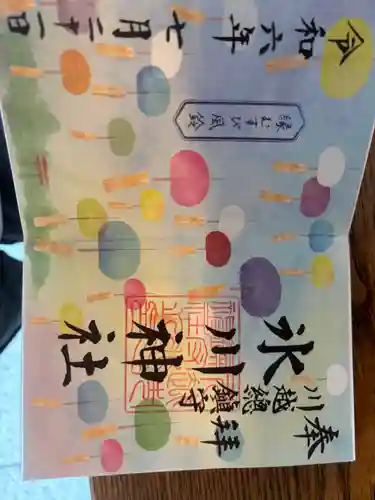 奉拝
川越總鎮守
氷川神社
縁むすび風鈴
令和六年
七月二十一日